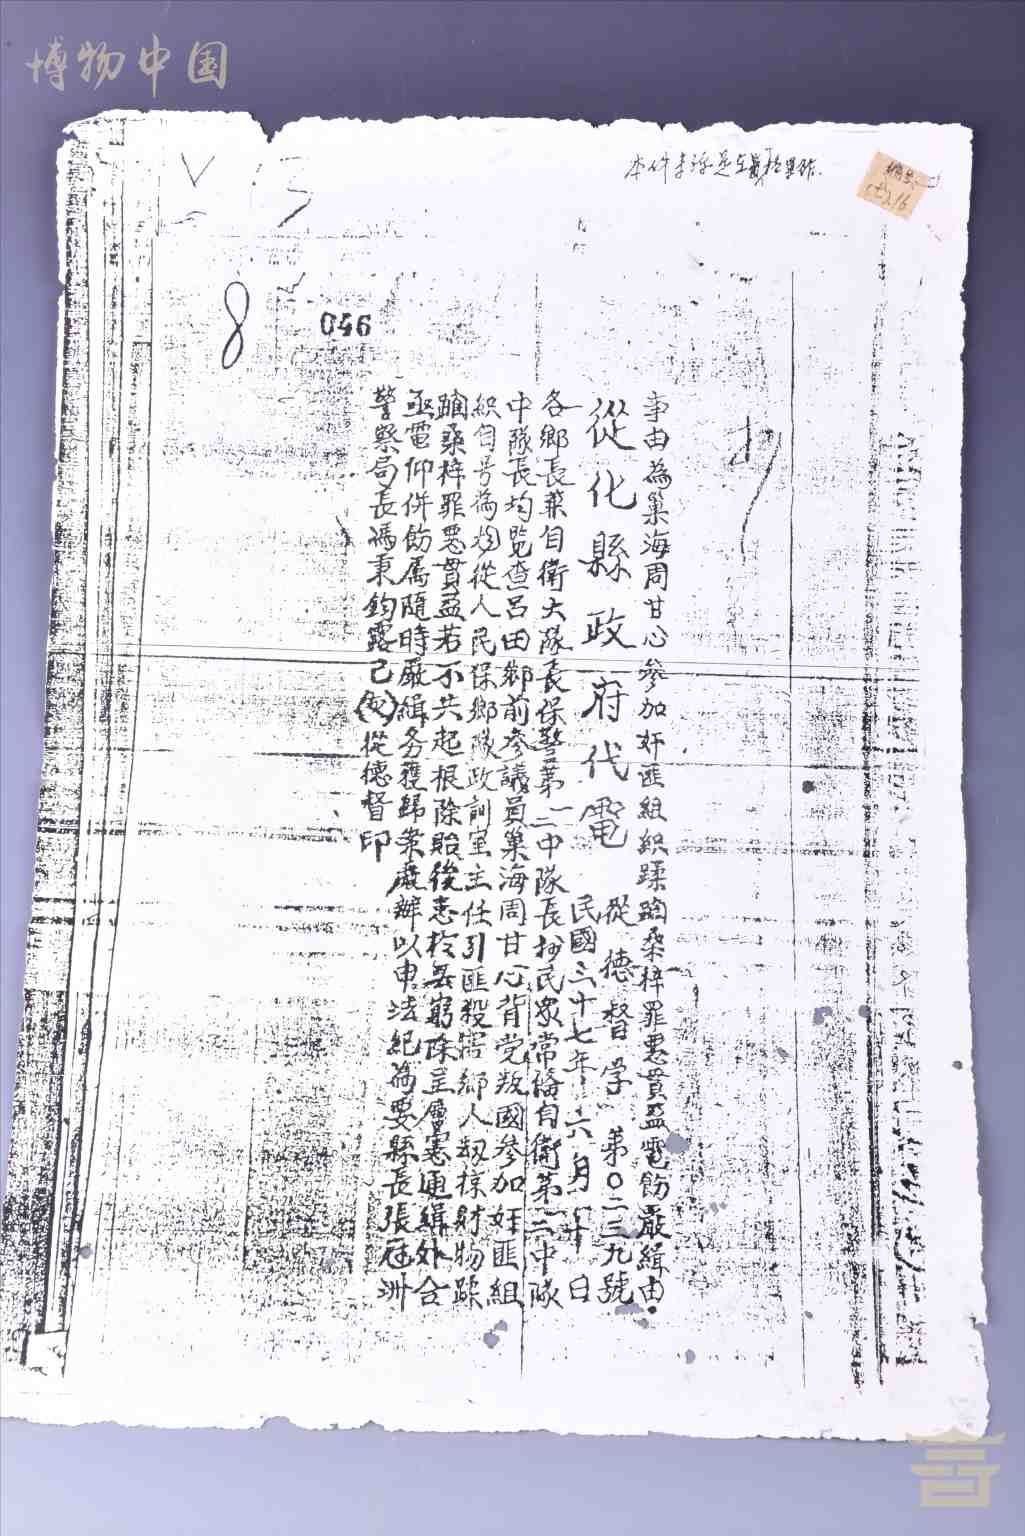 博物中国
編号
046
8
事由為巢海周甘心參加奸匪組織蹂躪桑梓罪悪貫盈電飭嚴緝由
從化縣政府代電
從德督字第〇二三九號
民國三十七年六月十日
各鄉長兼自衛大隊長保警第二中隊長抄民眾常備自衛第二中隊
中隊長均览查呂田鄉前參議員巢海周甘心背党叛國參加奸匪組
織自号為從人民保鄉隊政訓室主任引匪殺害鄉人劫掠財物蹂
躪桑梓罪悪貫盈若不共起根除貽後患於無窮除呈層憲通緝外合
亟電仰併飭属隨時嚴緝務獲歸案嚴辦以申法紀為要縣長張洲
警察局長馮秉鈞露己從德督印